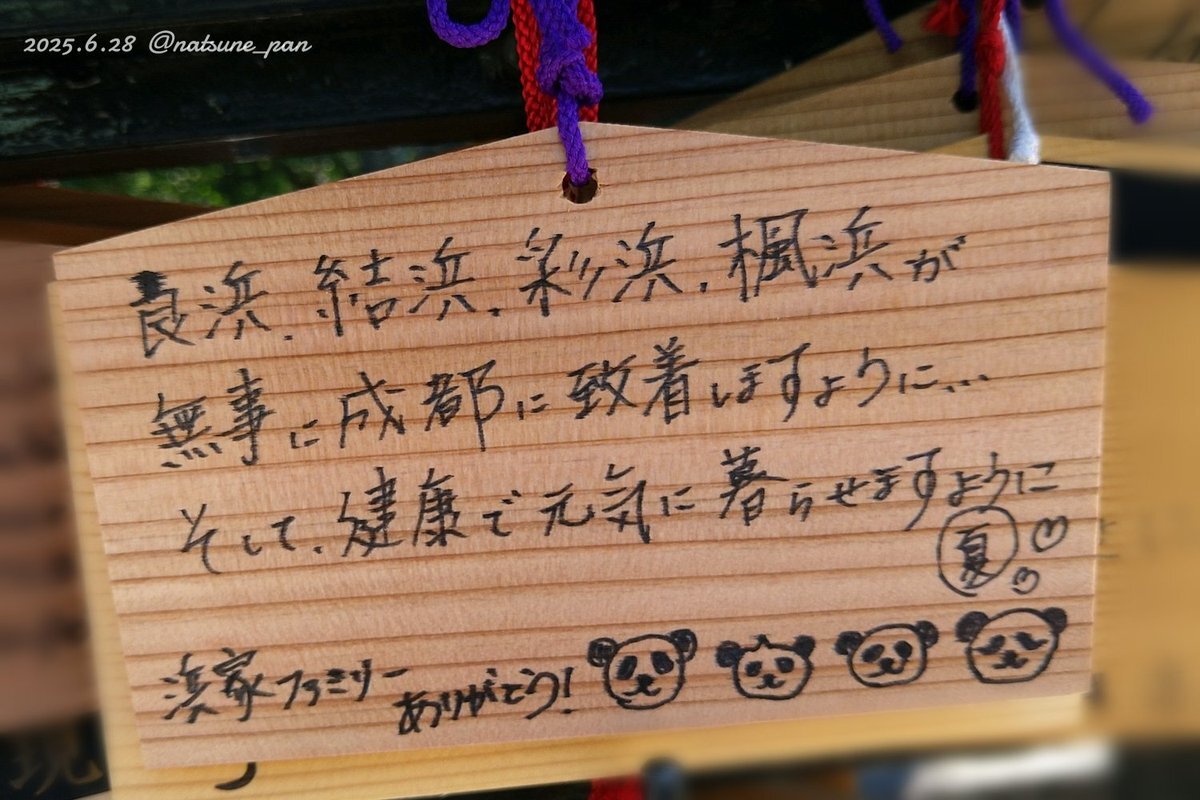 2025.6.28 @natsune_pan
良浜.結浜.彩浜.楓浜が
無事に成都に致着しますように...
そして、健康で元気に暮らせますように
夏
浜家ファミリーありがとう!
現